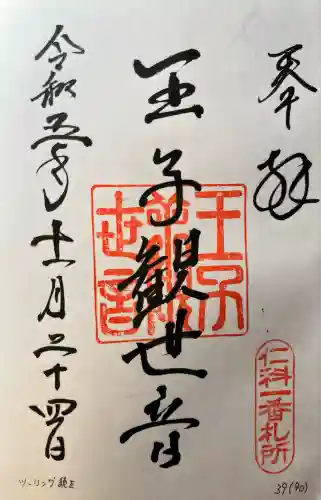 奉拝
王子観世音
令和五年十一月二十四日
王子観世音
仁科一番札所
ツーリング
39(90)